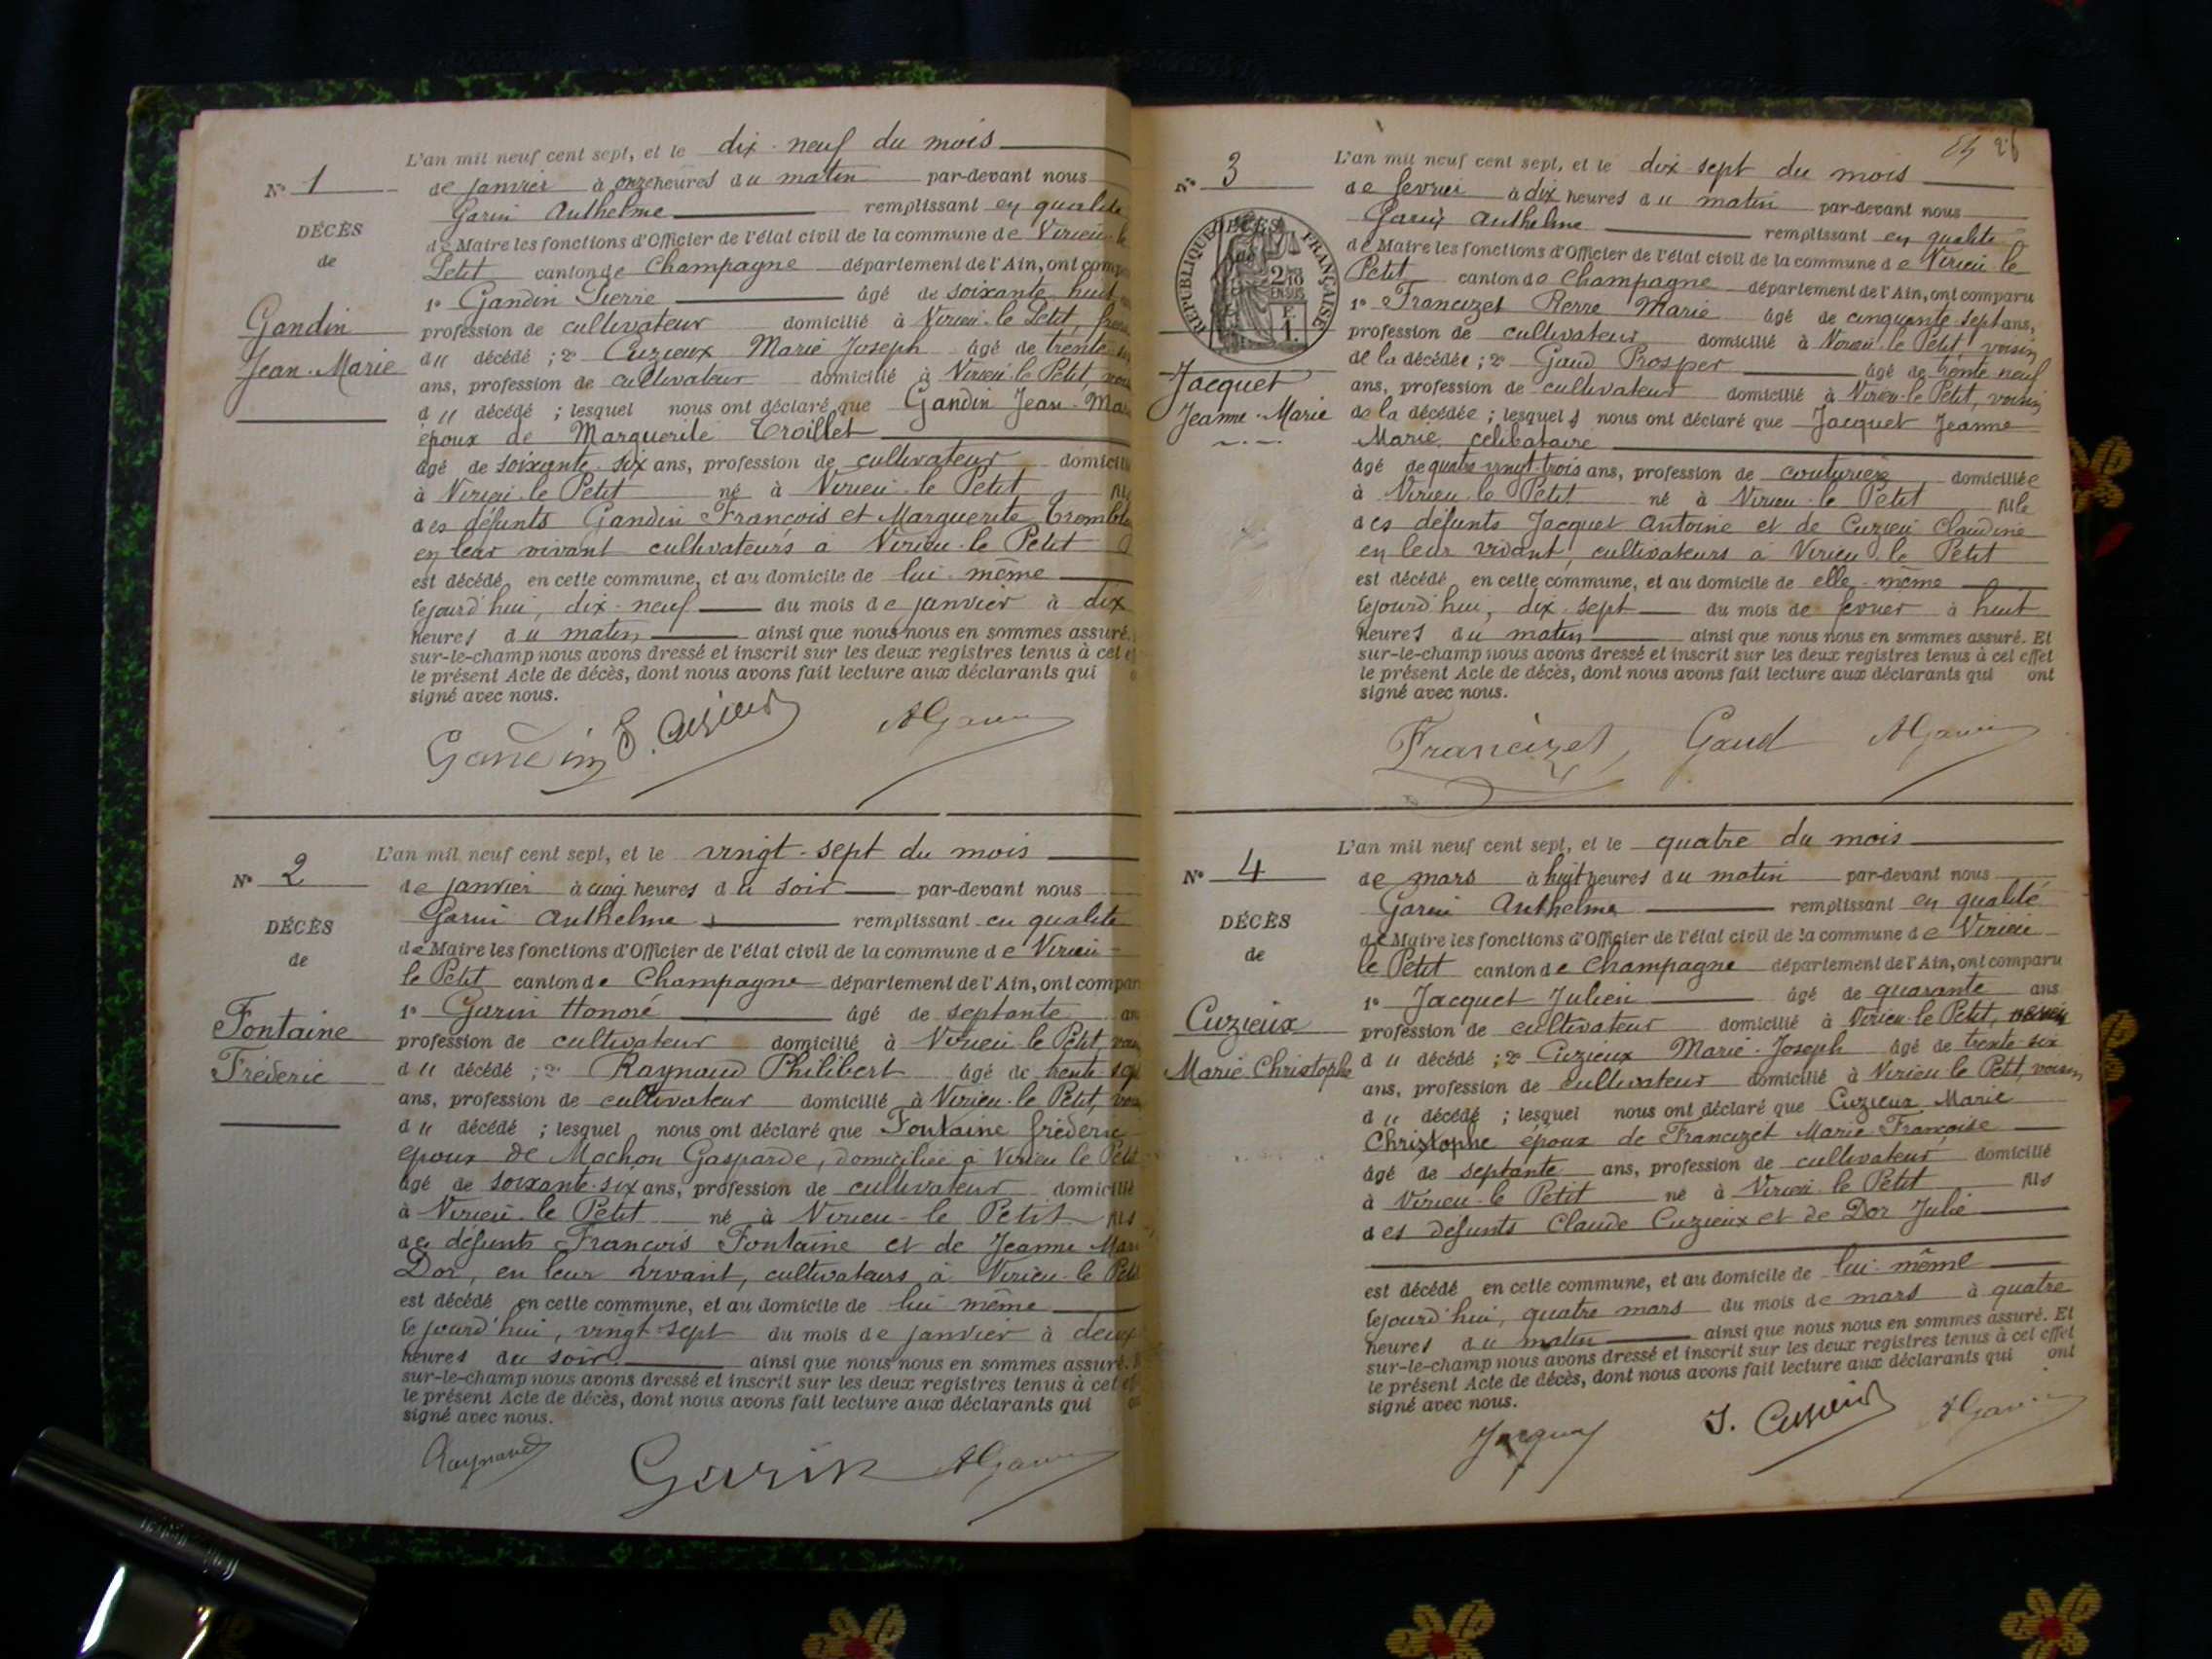 L'an mil neuf cent sept, et le dix-neuf du mois
N° 1
de janvier à onze heures du matin par-devant nous
Garin Anthelme remplissant en qualité
DÉCÈS
de Maire les fonctions d'Officier de l'état civil de la commune de Virieu-le
de
Petit canton de Champagne département de l'Ain, ont comp
1° Gandin Pierre âgé de soixante huit
Gandin
profession de cultivateur domicilié à Virieu-le Petit, frère
Jean-Marie
du décédé ; 2° Cuzieux Marie Joseph âgé de trente
ans, profession de cultivateur domicilié à Virieu-le Petit,
du décédé ; lesquel nous ont déclaré que Gandin Jean-Mar
époux de Marguerite Troillet
âgé de soixante-six ans, profession de cultivateur domicilié
à Virieu-le Petit né à Virieu-le Petit fils
des défunts Gandin François et Marguerite
en leur vivant cultivateurs à Virieu-le Petit
est décédé en cette commune, et au domicile de lui-même
cejourd'hui, dix-neuf du mois de janvier à dix
heures du matin ainsi que nous nous en sommes assuré.
sur-le-champ nous avons dressé et inscrit sur les deux registres tenus à cet e
le présent Acte de décès, dont nous avons fait lecture aux déclarants qui
signé avec nous.
Gandin J. Cuzieux AGarin
L'an mil neuf cent sept, et le vingt-sept du mois
N° 2
de janvier à cinq heures du soir par-devant nous
DÉCÈS
Garin Anthelme remplissant en qualité
de Maire les fonctions d'Officier de l'état civil de la commune de Virieu-
de
le Petit canton de Champagne département de l'Ain, ont compar
1° Garin Honoré âgé de septante an
Fontaine
profession de cultivateur domicilié à Virieu-le Petit,
Frédéric
du décédé ; 2° Raynaud Philibert âgé de trente sept
ans, profession de cultivateur domicilié à Virieu-le Petit,
du décédé ; lesquel nous ont déclaré que Fontaine frédéric
époux de Mochon Gasparde, domiciliée à Virieu le Petit
âgé de soixante-six ans, profession de cultivateur domicilié
à Virieu-le Petit né à Virieu-le Petit fils
des défunts François Fontaine et de Jeanne Mari
Dor, en leur vivant, cultivateurs à Virieu-le Petit
est décédé en cette commune, et au domicile de lui même
cejourd'hui, vingt-sept du mois de janvier à deux
heures du soir ainsi que nous nous en sommes assuré.
sur-le-champ nous avons dressé et inscrit sur les deux registres tenus à cet ef
le présent Acte de décès, dont nous avons fait lecture aux déclarants qui
signé avec nous.
Raynaud Garin AGarin
L'an mil neuf cent sept, et le dix-sept du mois
N° 3
de fevrier à dix heures du matin par-devant nous
Garin Anthelme remplissant en qualité
DÉCÈS
de
RÉPUBLIQUE FRANÇAISE
2/10 EN SUS
F. 1.
de Maire les fonctions d'Officier de l'état civil de la commune de Virieu le
Petit canton de Champagne département de l'Ain, ont comparu
1° Francizet Pierre Marie âgé de cinquante-sept ans,
profession de cultivateur domicilié à Virieu-le Petit, voisin
de la décédée ; 2° Gaud Prosper âgé de trente neuf
Jacquet
ans, profession de cultivateur domicilié à Virieu-le Petit, voisin
Jeanne-Marie
de la décédée ; lesquels nous ont déclaré que Jacquet Jeanne
Marie célibataire
âgé de quatre vingt-trois ans, profession de couturière domiciliée
à Virieu-le Petit né à Virieu-le Petit fille
des défunts Jacquet Antoine et de Cuzieu Claudine
en leur vivant, cultivateurs à Virieu-le Petit
est décédé en cette commune, et au domicile de elle-même
cejourd'hui, dix-sept du mois de fevrier à huit
heures du matin ainsi que nous nous en sommes assuré. Et
sur-le-champ nous avons dressé et inscrit sur les deux registres tenus à cet effet
le présent Acte de décès, dont nous avons fait lecture aux déclarants qui ont
signé avec nous.
Francizet Gaud AGarin
L'an mil neuf cent sept, et le quatre du mois
N° 4
de mars à huit heures du matin par-devant nous
Garin Anthelme remplissant en qualité
DÉCÈS
de Maire les fonctions d'Officier de l'état civil de la commune de Virieu
de
le Petit canton de Champagne département de l'Ain, ont comparu
1° Jacquet Julien âgé de quarante ans
Cuzieux
profession de cultivateur domicilié à Virieu-le Petit,
Marie Christophe
du décédé ; 2° Cuzieux Marie-Joseph âgé de trente-six
ans, profession de cultivateur domicilié à Virieu le Petit, voisin
du décédé ; lesquel nous ont déclaré que Cuzieux Marie
Christophe époux de Francizet Marie-Françoise
âgé de septante ans, profession de cultivateur domicilié
à Virieu-le Petit né à Virieu-le Petit fils
des défunts Claude Cuzieux et de Dor Julie
est décédé en cette commune, et au domicile de lui-même
cejourd'hui, quatre mars du mois de mars à quatre
heures du matin ainsi que nous nous en sommes assuré. Et
sur-le-champ nous avons dressé et inscrit sur les deux registres tenus à cet effet
le présent Acte de décès, dont nous avons fait lecture aux déclarants qui ont
signé avec nous.
Jacquet J. Cuzieux AGarin